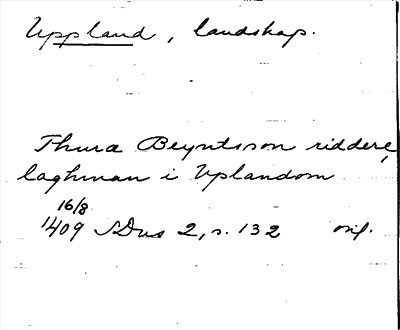 Uppland, landskap.
Thura Beyntsson riddere,
laghman i Uplandom
16/8
1409 SDns 2, s. 132 orig.